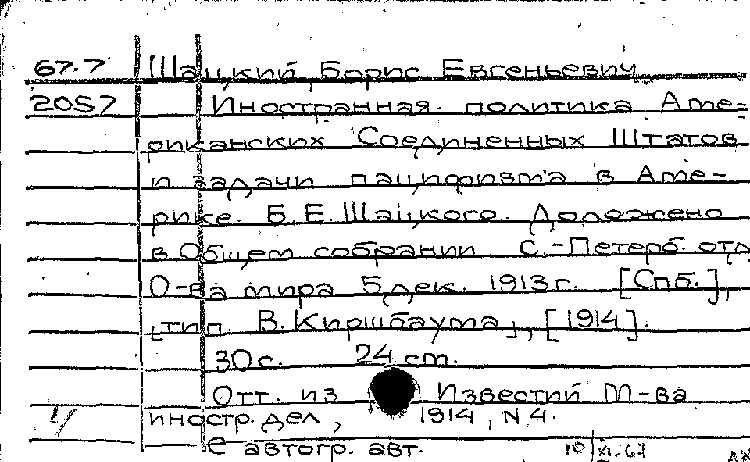 67.7 Шацкий, Борис Евгеньевич
2057 Иностранная политика Аме-
риканских Соединенных Штатов
и задачи пацифизма в Аме-
рике. Б.Е. Шацкого. Доложено
в Общем собрании С.-Петерб. отд
О-ва мира 5 дек. 1913 г. [Спб.],
[тип. В. Киршбаума], [1914].
30 с. 24 cm.
Отт. из Известий М-ва
иностр. дел, 1914, N 4.
С автогр. авт.